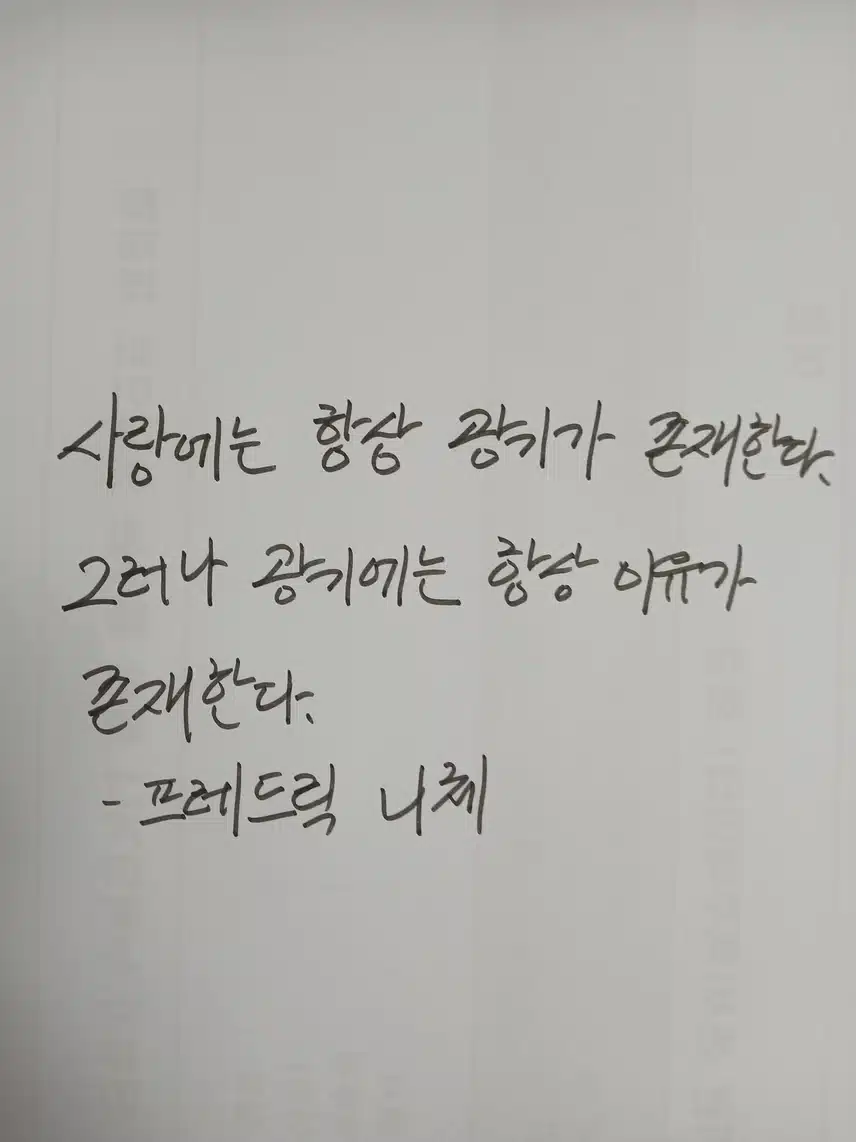 사랑에는 항상 광기가 존재한다.
그러나 광기에는 항상 이유가
존재한다.
- 프레드릭 니체